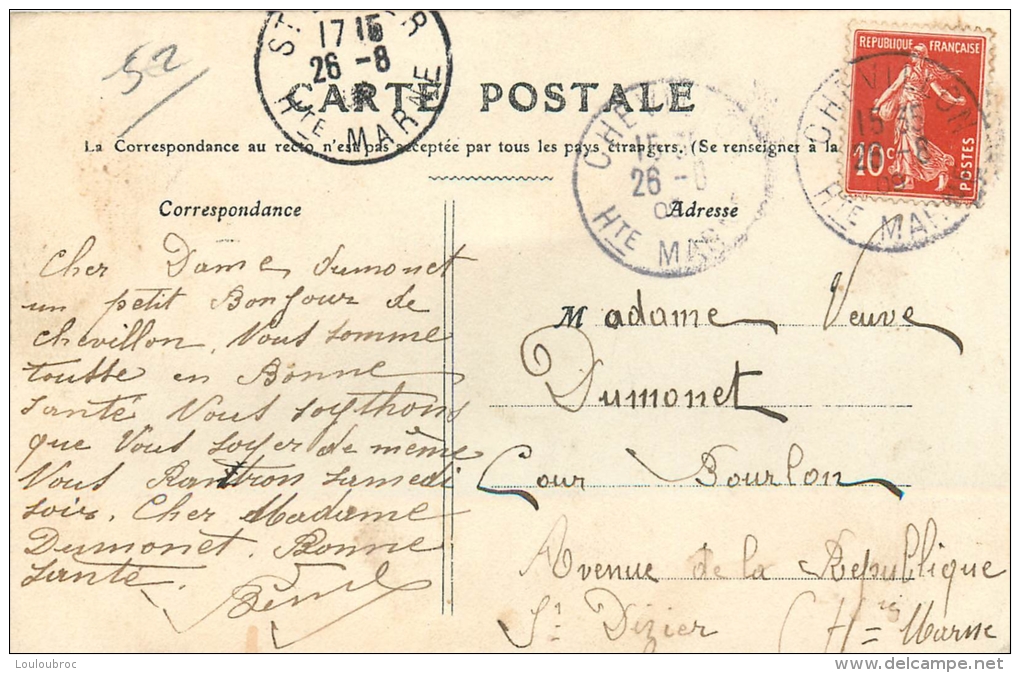 52
17 15
26 -8
Hte MARNE
CARTE POSTALE
La Correspondance au recto n'est pas acceptée par tous les pays étrangers. (Se renseigner à la
REPUBLIQUE FRANÇAISE
10c
POSTES
CHEVILLON
15 35
26 -8
09
Hte MARNE
CHEV
15
26 -8
09
Hte MARNE
Correspondance
Cher Dame dumonet
un petit Bonjour de
chevillon. Vous somme
toutte en Bonne
santé Nous soythons
que Vous soyer de même
Nous Rantron samedi
soir. Cher Madame
Dumonet. Bonne
santé.
Adresse
Madame Veuve
Dumonet
Cour Bourlon
Avenue de la République
St Dizier (Hte Marne
Louloubroc
delcampe.net